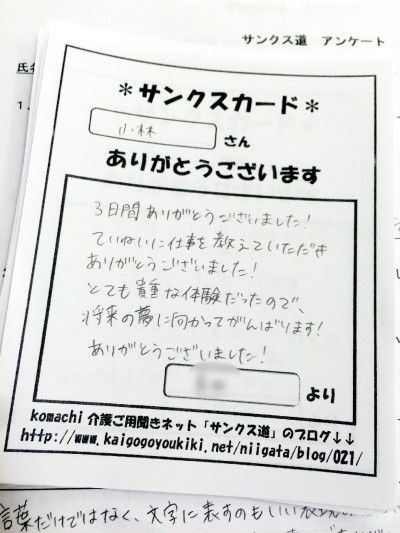 サンクス道 アンケート
氏名
1、
＊サンクスカード＊
小林 さん
ありがとうございます
3日間ありがとうございました！
ていねいに仕事を教えていただき
ありがとうございました！
とても貴重な体験だったので、
将来の夢に向かってがんばります！
ありがとうございました！
より
komachi 介護ご用聞きネット「サンクス道」のブログ↓↓
http://www.kaigogoyoukiki.net/niigata/blog/021/
言葉だけではなく、文字に表すのもいい